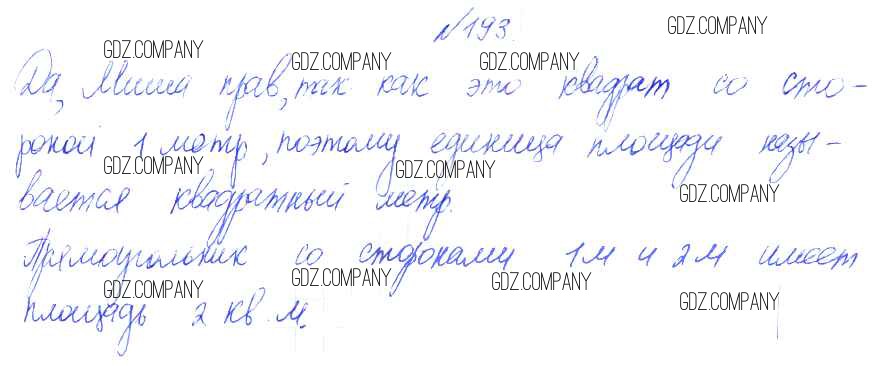 №193.
Да, Миша прав, так как это квадрат со сто-
роной 1 метр, поэтому единица площади назы-
вается квадратный метр.
Прямоугольник со сторонами 1м и 2м имеет
площадь 2 кв.м.
GDZ.COMPANY
GDZ.COMPANY
GDZ.COMPANY
GDZ.COMPANY
GDZ.COMPANY
GDZ.COMPANY
GDZ.COMPANY
GDZ.COMPANY
GDZ.COMPANY
GDZ.COMPANY
GDZ.COMPANY